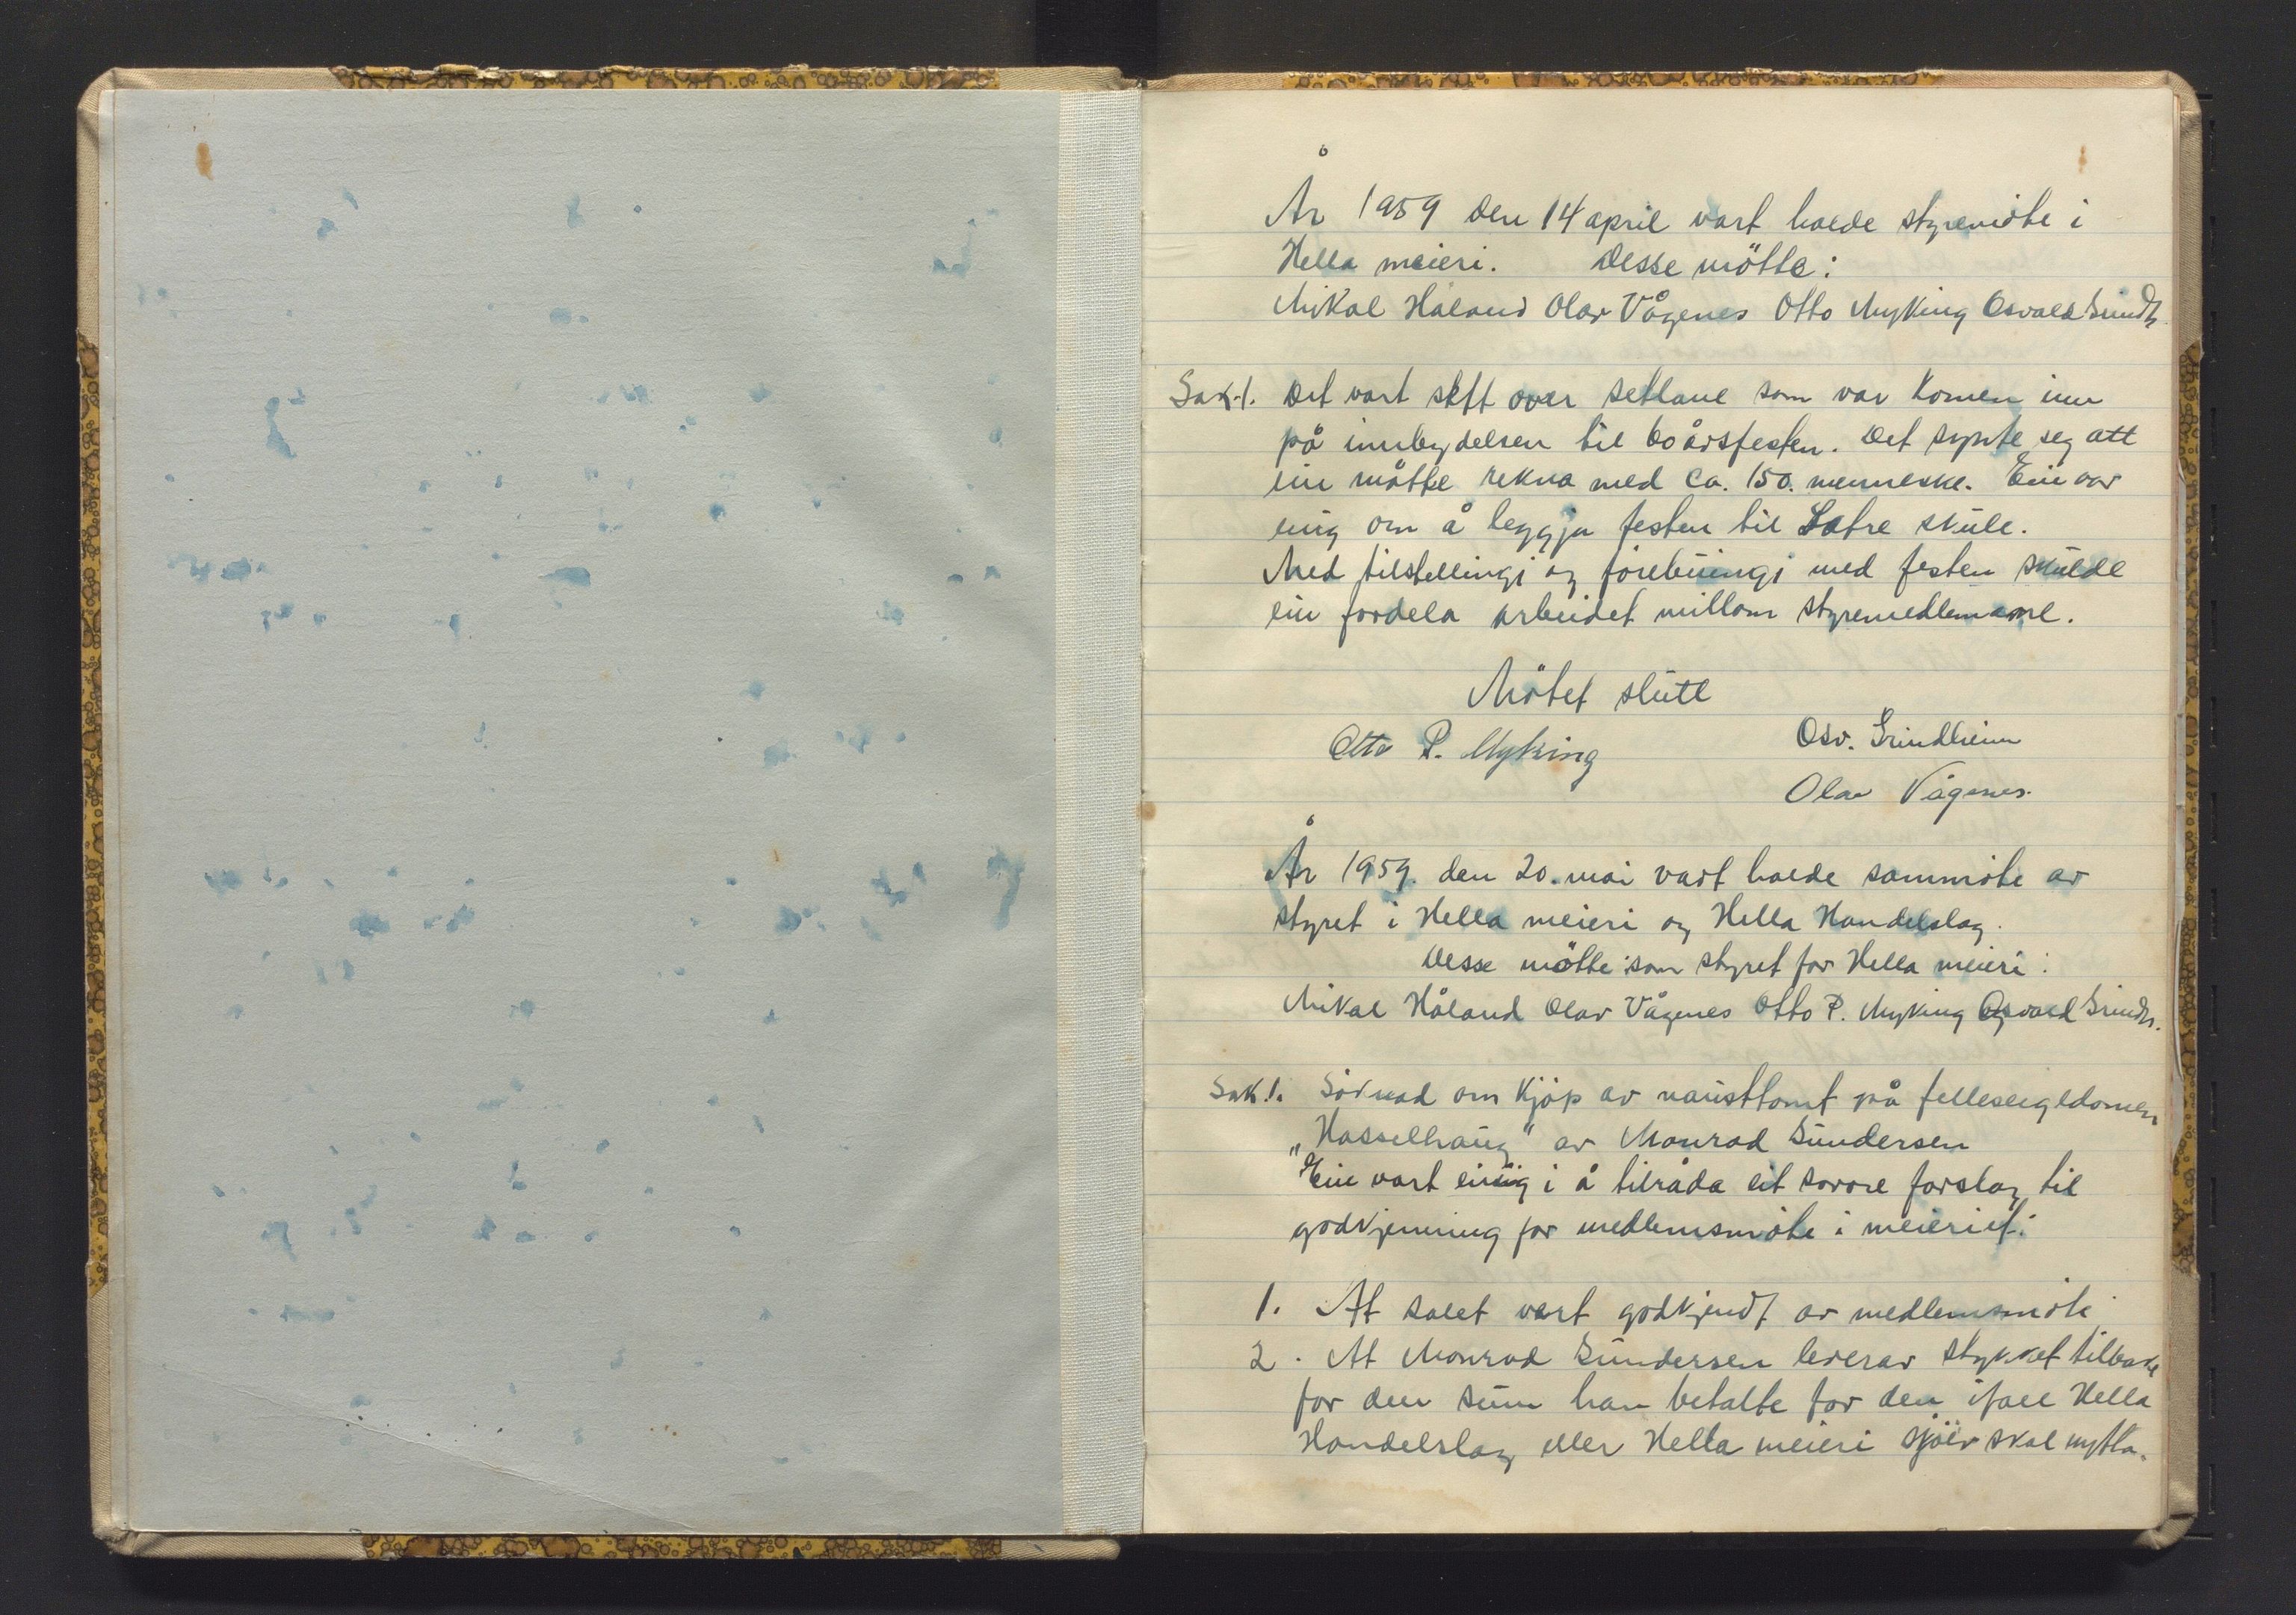 År 1959 den 14 april vart halde styremöte i
Hella meieri. Desse mötte:
Mikal Håland Olav Vågenes Otto Myking Osvald Grindh.
Sak.1. Det vart sett over setlane som var komen inn
på innbydelsen til 60 årsfesten. Det synte seg att
ein måtte rekna med ca. 150. menneske. Ein var
einig om å leggja festen til Sætre skule.
Med tilstellingi og förebuingi med festen skulde
ein fordela arbeidet millom styremedlemane.
Mötet slutt
Otto P. Myking Osv. Grindheim
Olav Vågenes.
År 1959. den 20. mai vart halde sammöte av
styret i Hella meieri og Hella Handelslag.
Desse mötte som styret for Hella meieri:
Mikal Håland Olav Vågenes Otto P. Myking Osvald Grindh.
Sak 1. Söknad om kjöp av nausttomt på felleseigedomen
"Hasselhaug" av Monrad Gundersen
Ein vart einig i å tilråda eit sovore forslag til
godkjenning for medlemsmöte i meieriet:
1. At salet vert godkjendt av medlemsmöte
2. At Monrad Gundersen leverar stykket tilbake
for den sum han betalte for den ifall Hella
Handelslag eller Hella meieri sjölv skal nytta.